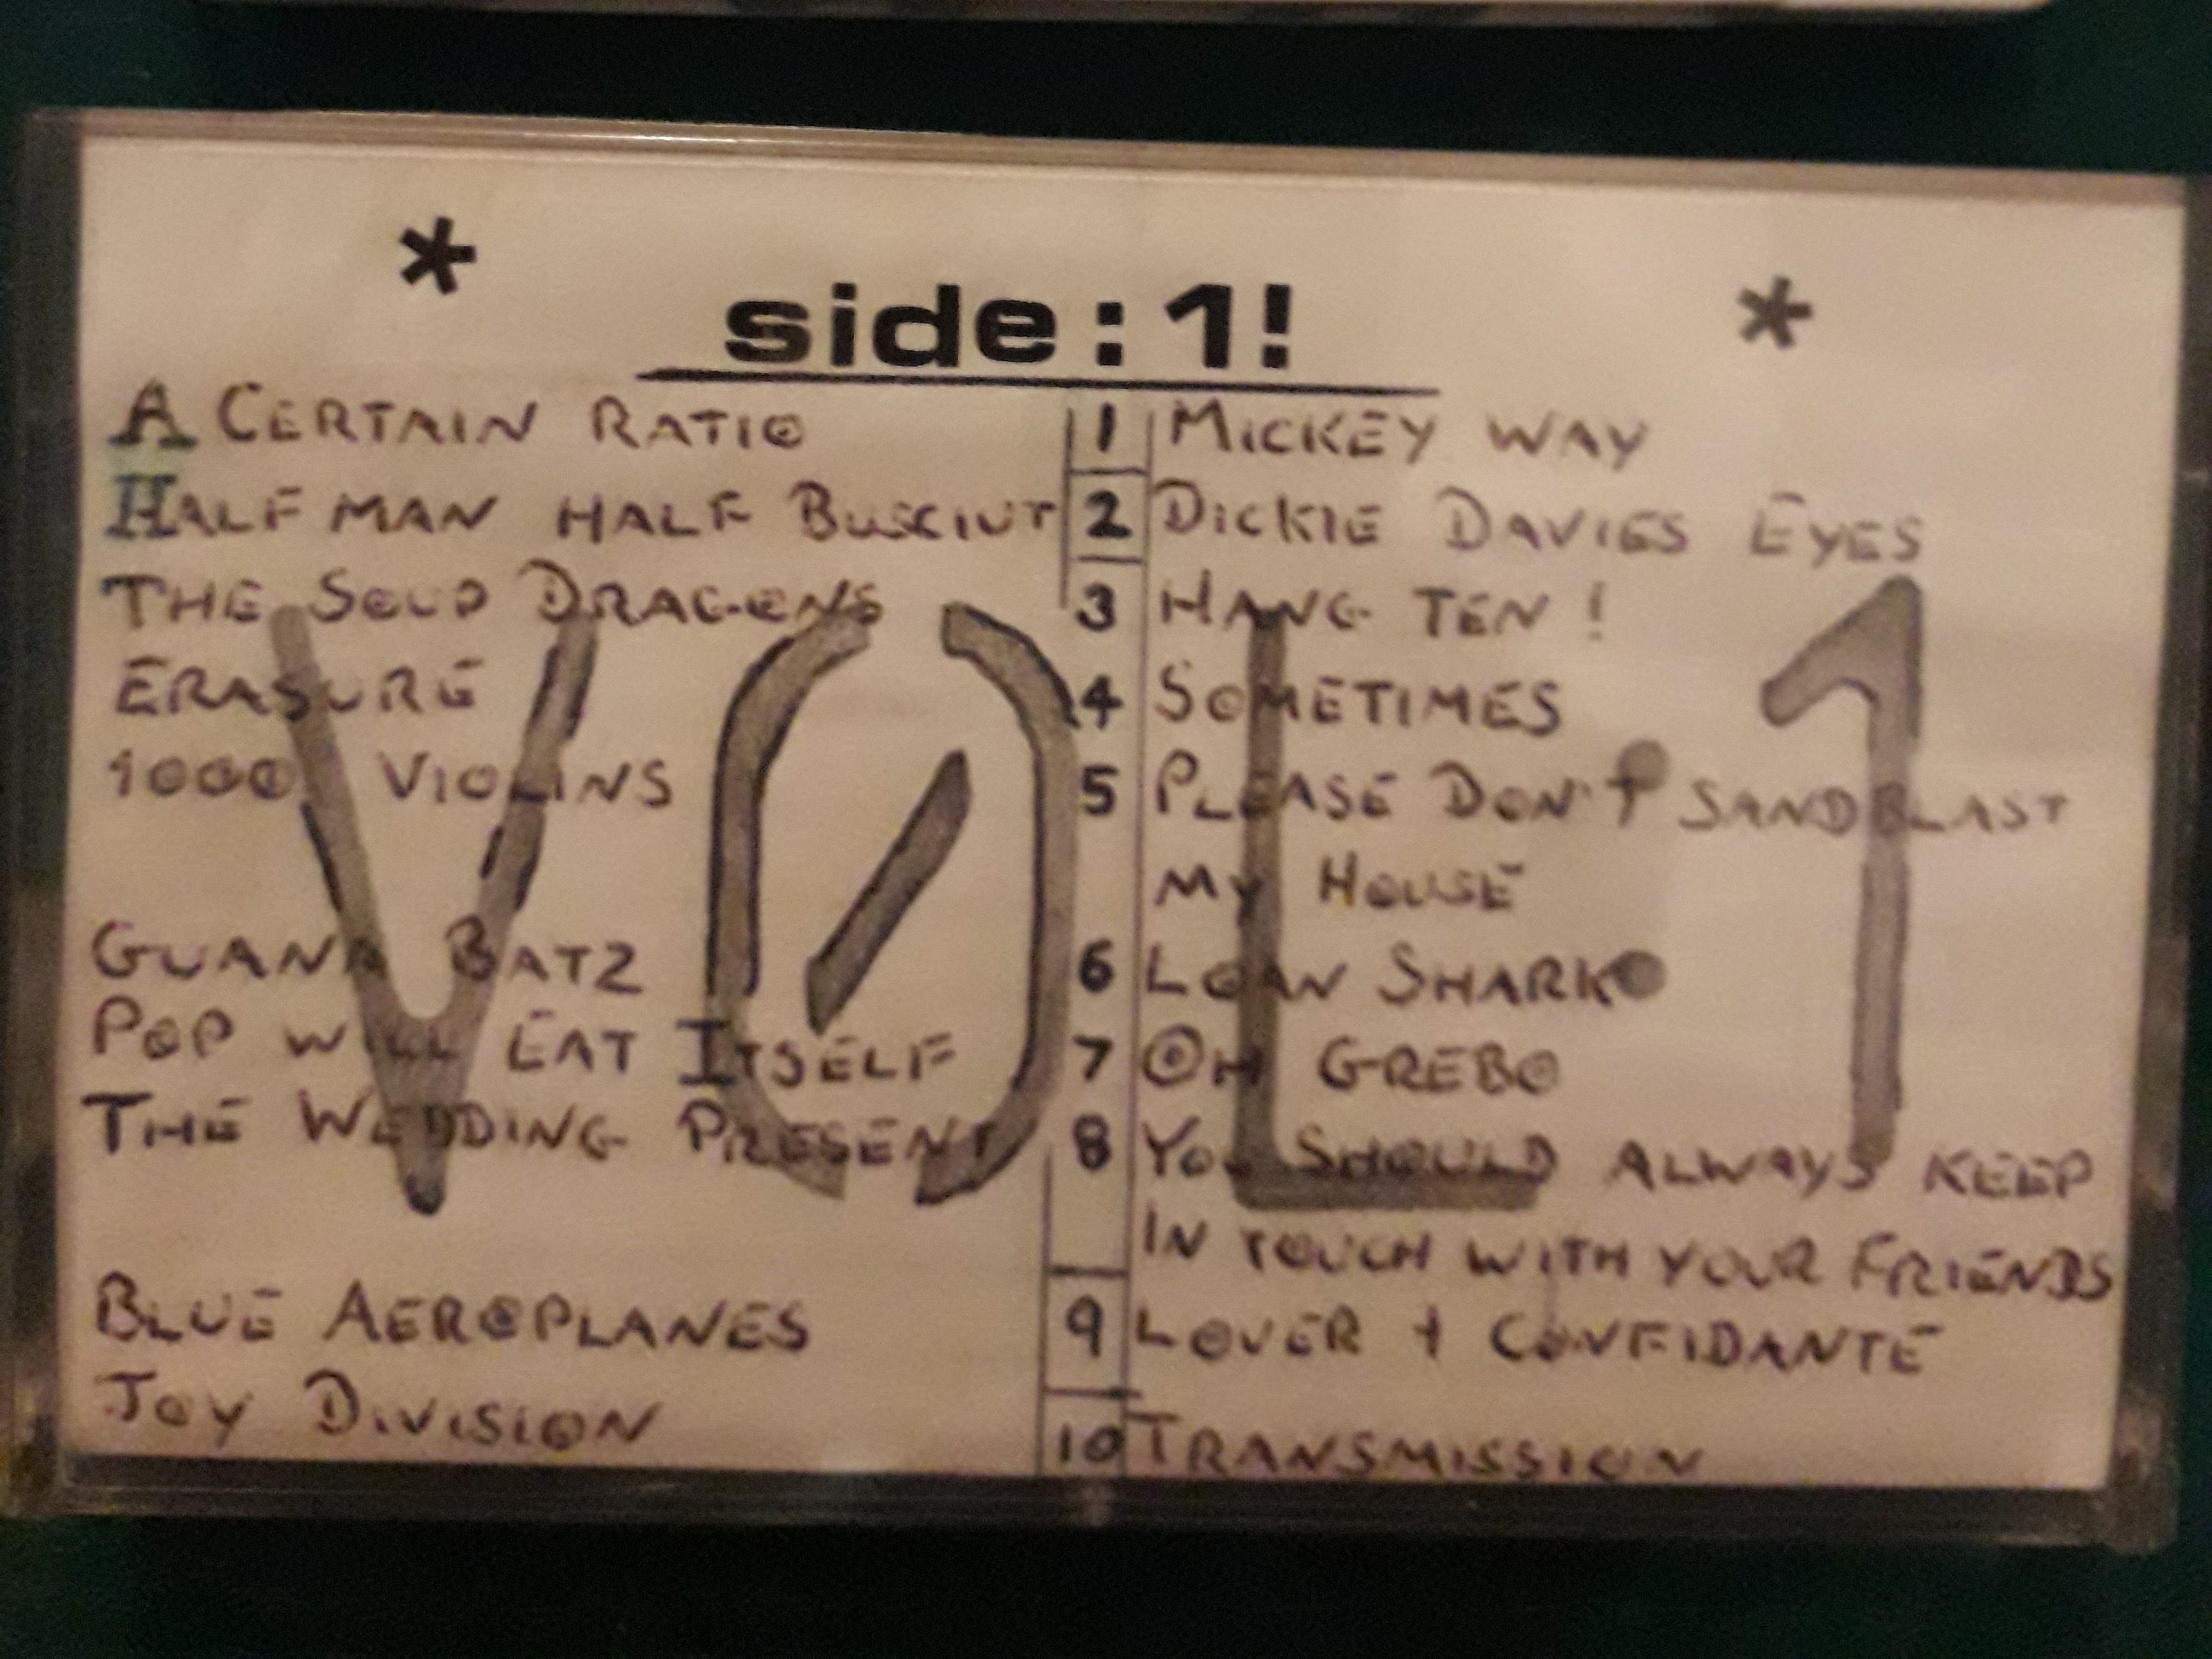 * side:1! *
A CERTAIN RATIO 1 MICKEY WAY
HALF MAN HALF BUSCIUT 2 DICKIE DAVIES EYES
THE SOUP DRAGONS 3 HANG TEN!
ERASURE 4 SOMETIMES
1000 VIOLINS 5 PLEASE DON'T SANDBLAST
MY HOUSE
GUANA BATZ 6 LOAN SHARK
POP WILL EAT ITSELF 7 OH GREBO
THE WEDDING PRESENT 8 YOU SHOULD ALWAYS KEEP
IN TOUCH WITH YOUR FRIENDS
BLUE AEROPLANES 9 LOVER + CONFIDANTE
JOY DIVISION 10 TRANSMISSION
VOL 1